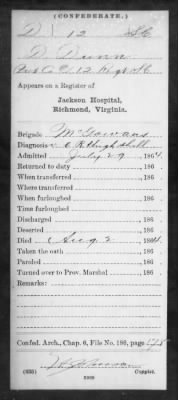 (CONFEDERATE.)
D 12 S C
D. Dunn
Pvt Co C 12 Regt S C
Appears on a Register of
Jackson Hospital,
Richmond, Virginia.
Brigade McGowans
Diagnosis v. s. R thigh shell
Admitted July 29, 1864
Returned to duty , 186 .
When transferred , 186 .
Where transferred
When furloughed , 186 .
Time furloughed
Discharged , 186 .
Deserted , 186 .
Died Aug 2 , 1864.
Took the oath , 186 .
Paroled , 186 .
Turned over to Prov. Marshal , 186 .
Remarks:
Confed. Arch., Chap. 6, File No. 186, page
(635)
Copyist.